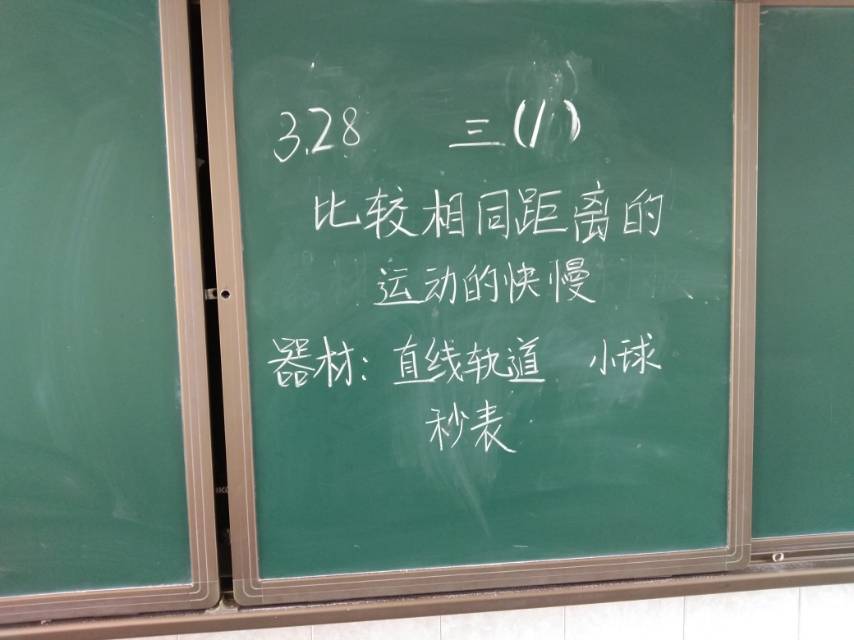 3.28 三(1)
比较相同距离的
运动的快慢
器材：直线轨道 小球
秒表